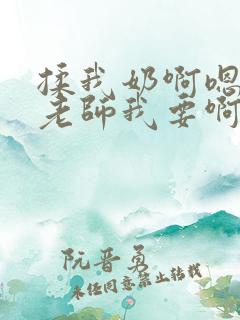 揉我奶啊嗯
老師我要啊
阮晋勇
未经同意禁止转载